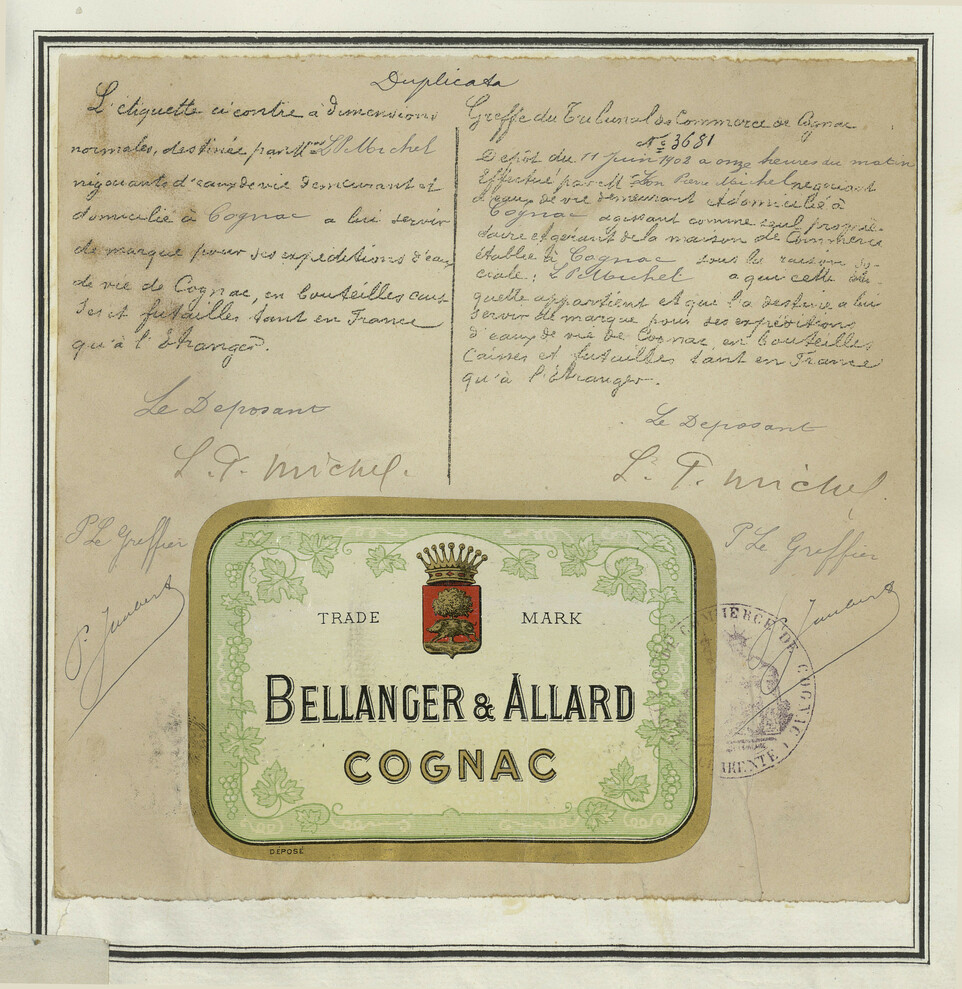 Duplicata
L'étiquette ci contre à dimensions
normales, destinée par Mr L P Michel
négociants d'eaux de vie demeurant et
domicilié à Cognac a lui servir
de marque pour ses expéditions d'eaux
de vie de Cognac, en bouteilles cais
ses et futailles tant en France
qu'à l'Etranger.
Le Deposant
L. P. Michel.
P Le Greffier
P. Jaubert
Greffe du Tribunal de Commerce de Cognac
No 3681
Dépôt du 11 Juin 1902 a onze heures du matin
Effectué par M Léon Pierre Michel negociant
d'eaux de vie demeurant & domicilié à
Cognac agissant comme seul proprié-
taire et gérant de la maison de Commerce
établie à Cognac sous la raison so-
ciale: L P Michel a qui cette éti-
quette appartient et que l'a destine a lui
servir de marque pour ses expéditions
d'eaux de vie de Cognac en bouteilles
Caisses et futailles tant en France
qu'à l'Etranger.
Le Deposant
L. P. Michel.
P Le Greffier
Jaubert
TRADE MARK
BELLANGER & ALLARD
COGNAC
DÉPOSÉ
COMMERCE DE COGNAC
CHARENTE